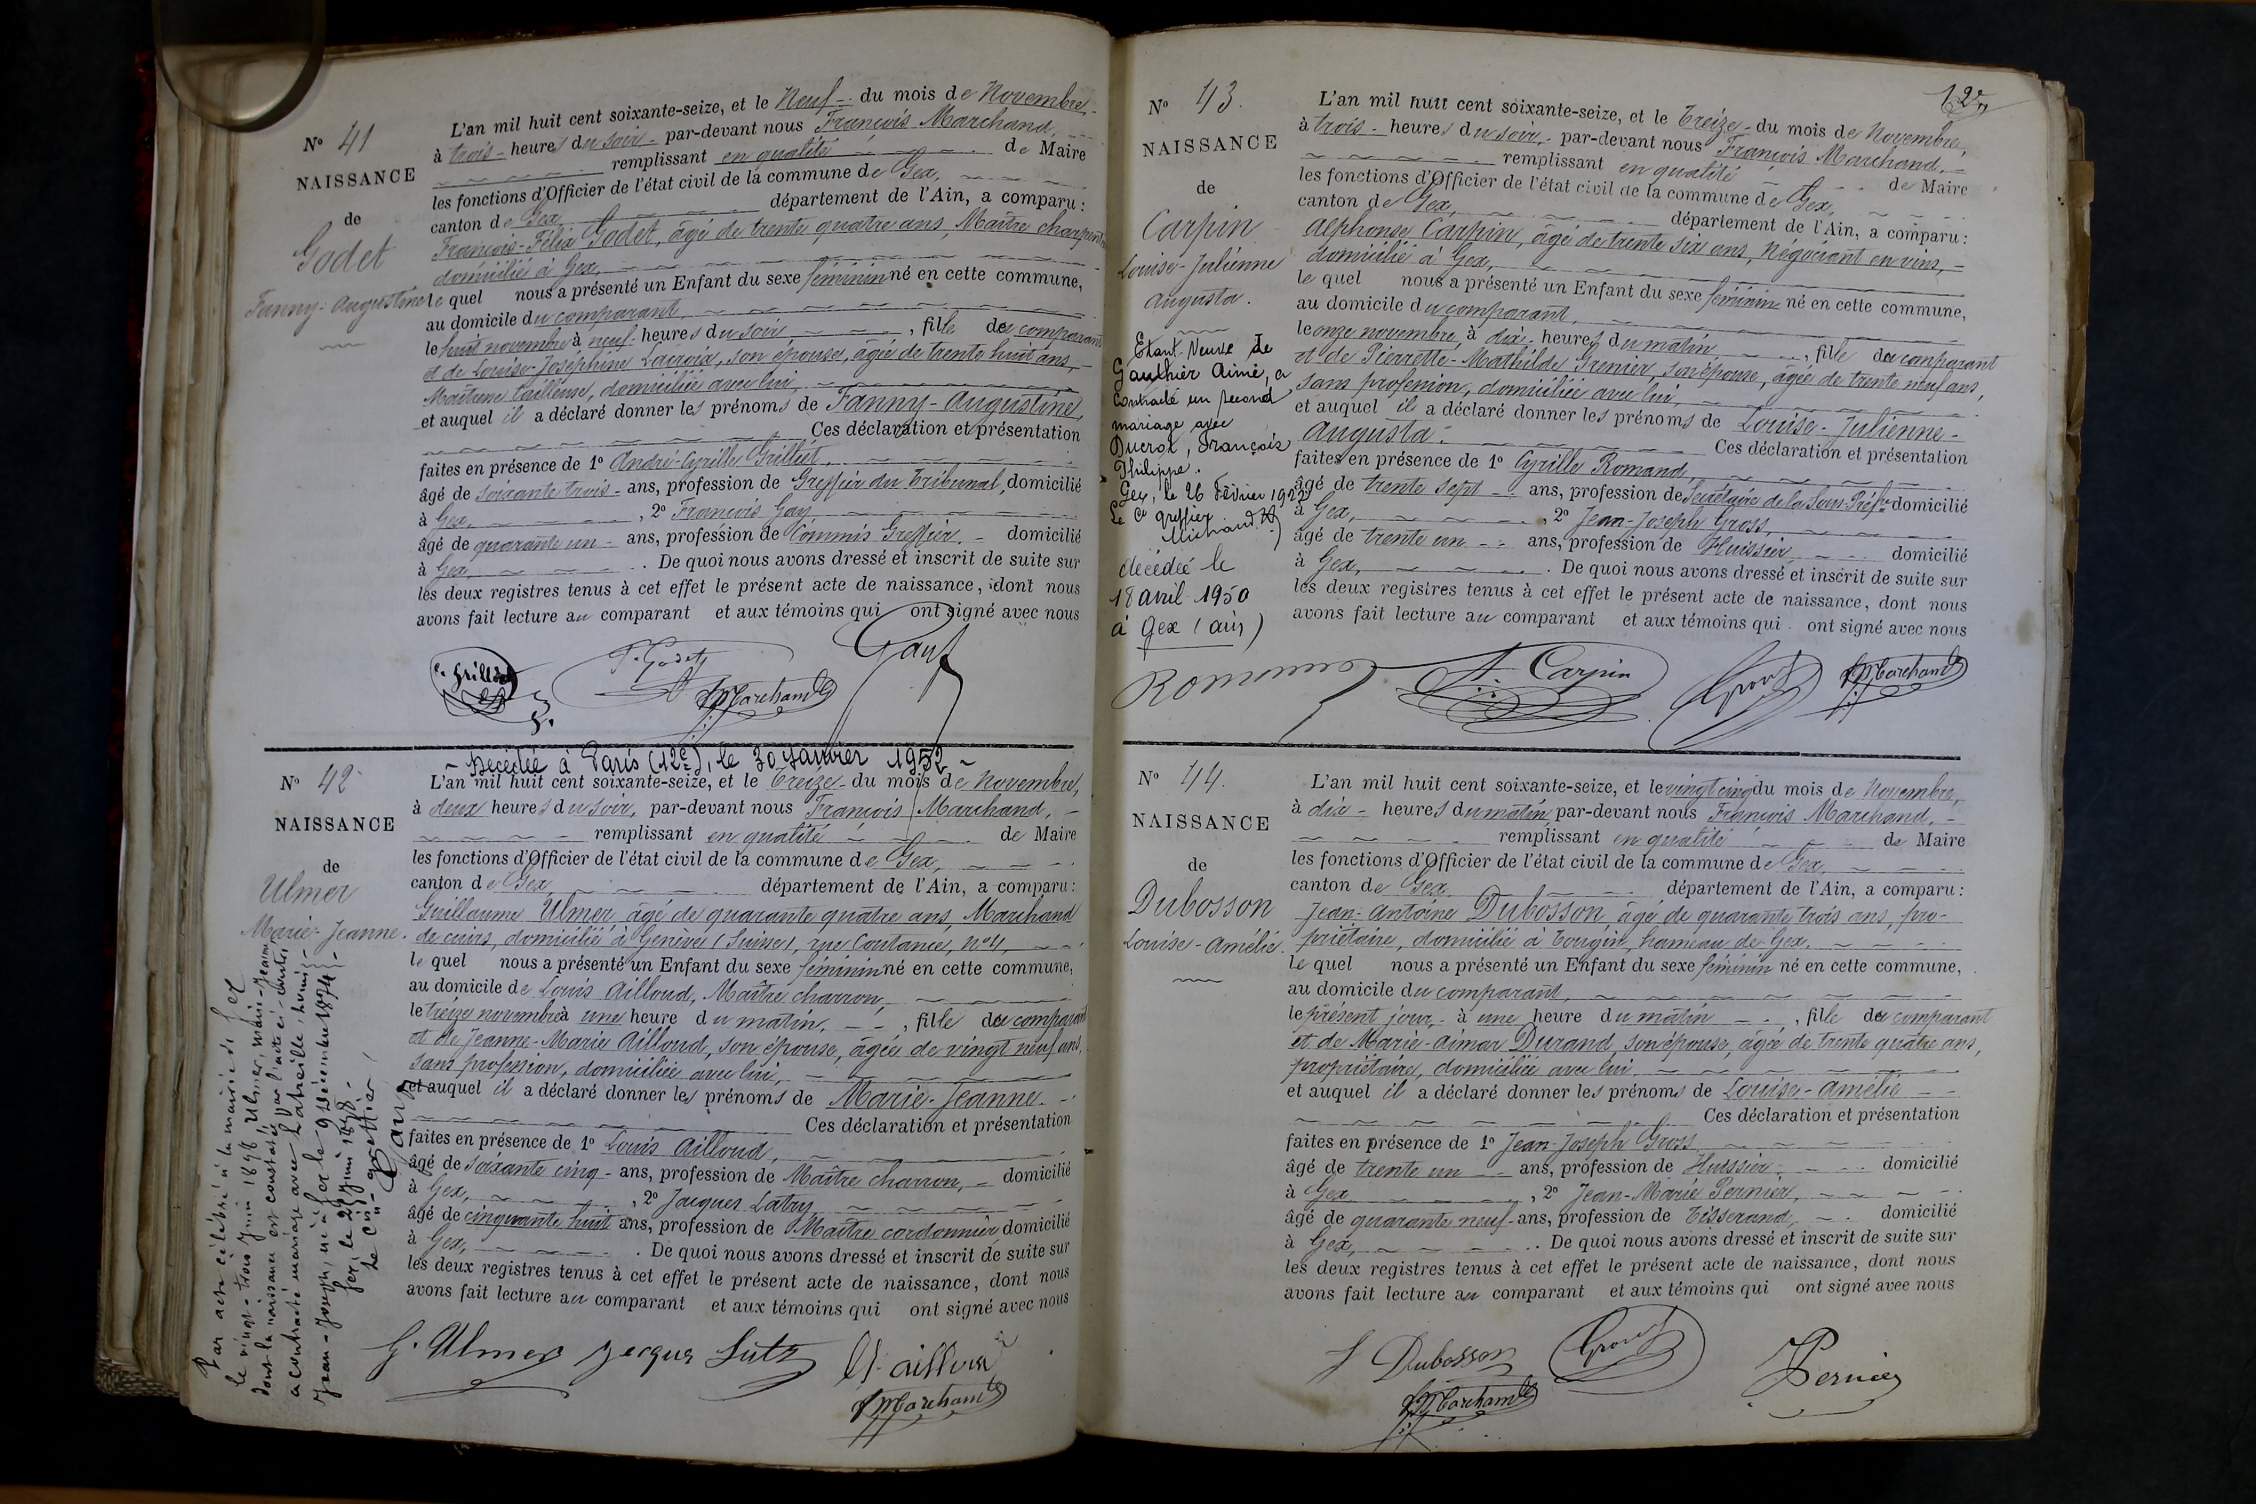 N° 41
NAISSANCE
de
Godet
Fanny-Augustine
L'an mil huit cent soixante-seize, et le Neuf du mois de Novembre
à trois heures du soir par-devant nous François Marchand,
remplissant en qualité de Maire
les fonctions d'Officier de l'état civil de la commune de Gex,
canton de Gex, département de l'Ain, a comparu :
François-Félix Godet, âgé de trente quatre ans, Maître charpentier
domicilié à Gex,
le quel nous a présenté un Enfant du sexe féminin né en cette commune,
au domicile du comparant,
le huit novembre à neuf heures du soir, fille du comparant
et de Louise-Joséphine Lacroix, son épouse, âgée de trente huit ans,
Maîtresse tailleuse, domiciliée avec lui,
et auquel il a déclaré donner les prénoms de Fanny-Augustine,
Ces déclaration et présentation
faites en présence de 1° André-Cyrille Grilliet,
âgé de soixante trois ans, profession de Greffier du Tribunal, domicilié
à Gex, 2° François Gay
âgé de quarante un ans, profession de Commis Greffier. domicilié
à Gex, . De quoi nous avons dressé et inscrit de suite sur
les deux registres tenus à cet effet le présent acte de naissance, dont nous
avons fait lecture au comparant et aux témoins qui ont signé avec nous
F. Godet Gay
F Marchand
Décédée à Paris (12e), le 30 Janvier 1952
N° 42
NAISSANCE
de
Ulmer
Marie-Jeanne.
L'an mil huit cent soixante-seize, et le Treize du mois de Novembre,
à deux heures du soir, par-devant nous François Marchand,
remplissant en qualité de Maire
les fonctions d'Officier de l'état civil de la commune de Gex,
canton de Gex, département de l'Ain, a comparu :
Guillaume Ulmer âgé de quarante quatre ans, Marchand
de cuirs, domicilié à Genève (Suisse), rue Coutance, n° 4,
le quel nous a présenté un Enfant du sexe féminin né en cette commune,
au domicile de Louis Ailloud, Maître charron,
le treize novembre à une heure du matin, fille du comparant
et de Jeanne-Marie Ailloud, son épouse, âgée de vingt neuf ans,
sans profession, domiciliée avec lui,
et auquel il a déclaré donner les prénoms de Marie-Jeanne.
Ces déclaration et présentation
faites en présence de 1° Louis Ailloud,
âgé de soixante cinq ans, profession de Maître charron, domicilié
à Gex, 2° Jacques Latry
âgé de cinquante huit ans, profession de Maître cordonnier domicilié
à Gex, . De quoi nous avons dressé et inscrit de suite sur
les deux registres tenus à cet effet le présent acte de naissance, dont nous
avons fait lecture au comparant et aux témoins qui ont signé avec nous
Par acte célébré à la mairie de Gex
le vingt-trois Juin 1898, Ulmer, Marie-Jeanne,
dont la naissance est constatée par l'acte ci-contre,
a contracté mariage avec
Jean-Joseph, né à Gex le 9 Décembre 1874
Gex, le 29 Juin 1898.
Le greffier,
Gay
G. Ulmer
F Marchand
N° 43.
NAISSANCE
de
Carpin
Louise-Julienne
Augusta.
Etant Veuve de
Gauthier Aimé, a
contracté un second
mariage avec
Ducrot, François
Philippe.
Gex, le 26 Février 192
Le Cis greffier
décédée le
18 avril 1950
à Gex (ain)
12
L'an mil huit cent soixante-seize, et le Treize du mois de Novembre,
à trois heures du soir, par-devant nous François Marchand,
remplissant en qualité de Maire
les fonctions d'Officier de l'état civil de la commune de Gex,
canton de Gex, département de l'Ain, a comparu :
Alphonse Carpin, âgé de trente six ans, Négociant en vins,
domicilié à Gex,
le quel nous a présenté un Enfant du sexe féminin né en cette commune,
au domicile du comparant,
le onze novembre, à dix heures du matin, fille du comparant
et de Pierrette-Mathilde Grenier, son épouse, âgée de trente neuf ans,
sans profession, domiciliée avec lui,
et auquel il a déclaré donner les prénoms de Louise-Julienne-
Augusta. Ces déclaration et présentation
faites en présence de 1° Cyrille Romand,
âgé de trente sept ans, profession de Secrétaire de la Sous-Préfre domicilié
à Gex, 2° Jean-Joseph Gross,
âgé de trente un ans, profession de Huissier domicilié
à Gex, . De quoi nous avons dressé et inscrit de suite sur
les deux registres tenus à cet effet le présent acte de naissance, dont nous
avons fait lecture au comparant et aux témoins qui ont signé avec nous
Romand A. Carpin Gross F Marchand
N° 44.
NAISSANCE
de
Dubosson
Louise-Amélie.
L'an mil huit cent soixante-seize, et le vingt cinq du mois de Novembre,
à dix heures du matin par-devant nous François Marchand,
remplissant en qualité de Maire
les fonctions d'Officier de l'état civil de la commune de Gex,
canton de Gex, département de l'Ain, a comparu :
Jean-Antoine Dubosson, âgé de quarante trois ans, pro-
priétaire, domicilié à Tougin, hameau de Gex,
le quel nous a présenté un Enfant du sexe féminin né en cette commune,
au domicile du comparant,
le présent jour, à une heure du matin, fille du comparant
et de Marie-Aimar Durand, son épouse, âgée de trente quatre ans,
propriétaire, domiciliée avec lui,
et auquel il a déclaré donner les prénoms de Louise-Amélie
Ces déclaration et présentation
faites en présence de 1° Jean-Joseph Gross,
âgé de trente un ans, profession de Huissier, domicilié
à Gex, 2° Jean-Marie Pernier,
âgé de quarante neuf ans, profession de Tisserand, domicilié
à Gex, . De quoi nous avons dressé et inscrit de suite sur
les deux registres tenus à cet effet le présent acte de naissance, dont nous
avons fait lecture au comparant et aux témoins qui ont signé avec nous
J Dubosson Gross Pernier
F Marchand